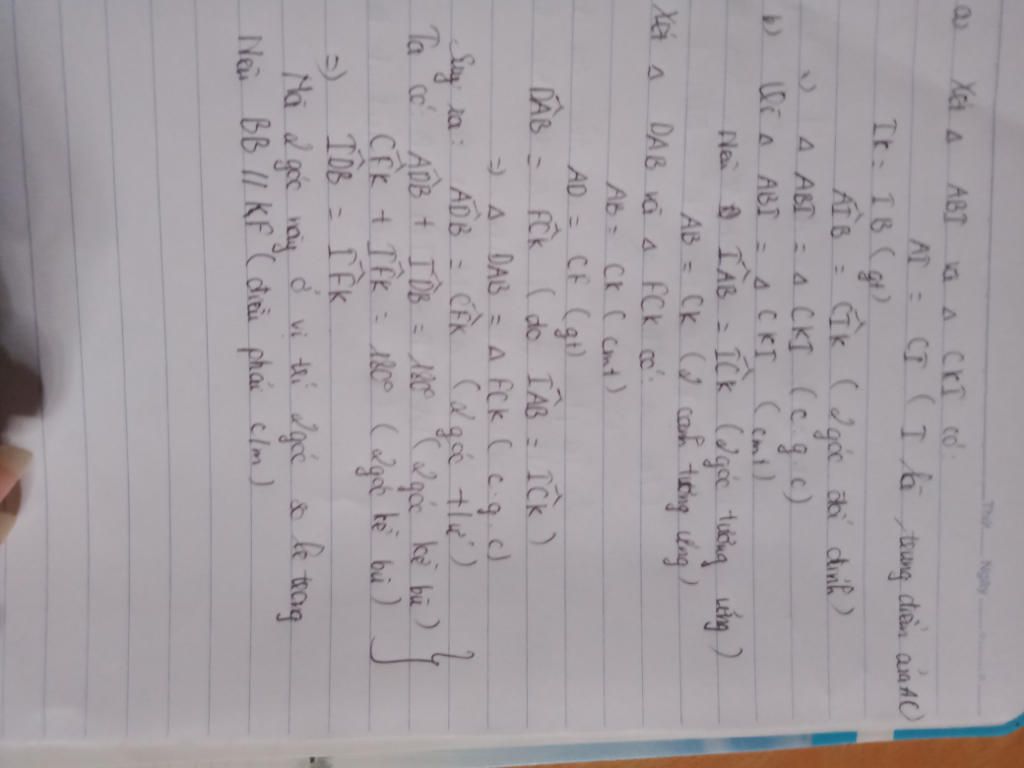 Thứ Ngày
a) Xét Δ ABI và Δ CKI có:
AI = CI ( I là trung điểm của AC)
IK = IB (gt)
AÎB = CÎK ( 2 góc đối đỉnh)
Δ ABI = Δ CKI ( c.g.c)
b) Vì Δ ABI = Δ CKI (cmt)
Nên IÂB = IĈK (2 góc tương ứng)
AB = CK (2 cạnh tương ứng)
Xét Δ DAB và Δ FCK có:
AB = CK ( cmt)
AD = CF (gt)
DÂB = FĈK ( do IÂB = IĈK )
=) Δ DAB = Δ FCK ( c.g.c)
Suy ra: AD̂B = CF̂K (2 góc t/ứ)
Ta có AD̂B + ID̂B = 180° (2 góc kề bù) }
CF̂K + IF̂K = 180° (2 góc kề bù)
=) ID̂B = IF̂K
Mà 2 góc này ở vị trí 2 góc so le trong
Nên BB // KF (điều phải c/m)